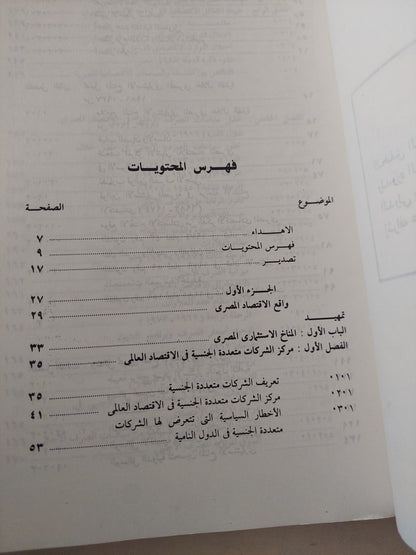 فهرس المحتويات
الموضوع الصفحة
الاهداء ٧
فهرس المحتويات ٩
تصدير ١٧
الجزء الأول ٢٧
واقع الاقتصاد المصرى ٢٩
تمهيد
الباب الأول : المناخ الاستثمارى المصرى ٣٣
الفصل الأول : مركز الشركات متعددة الجنسية فى الاقتصاد العالمى ٣٥
٠١٠١ تعريف الشركات متعددة الجنسية ٣٥
٠٢٠١ مركز الشركات متعددة الجنسية فى الاقتصاد العالمى ٤١
٠٣٠١ الأخطار السياسية التى تتعرض لها الشركات
متعددة الجنسية فى الدول النامية ٥٣